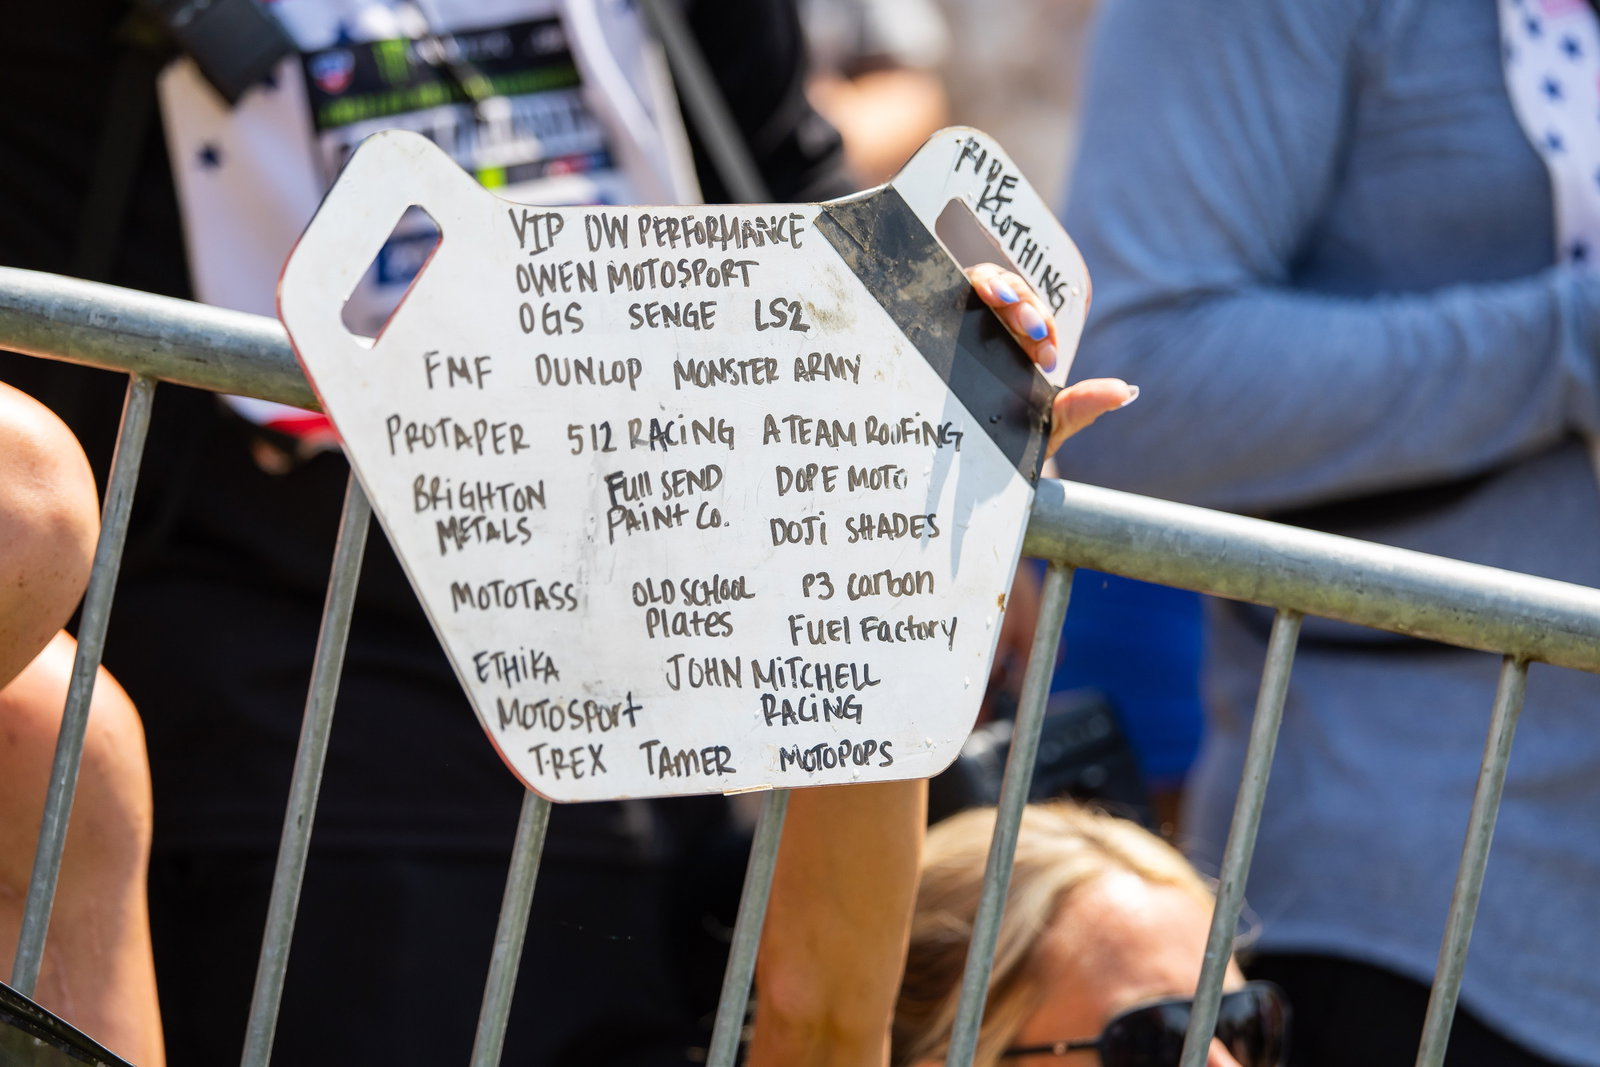 RIDE
KLOTHING
VIP DW PERFORMANCE
OWEN MOTOSPORT
OGS SENGE LS2
FMF DUNLOP MONSTER ARMY
PROTAPER 512 RACING A TEAM ROOFING
BRIGHTON METALS
Full SEND PAINT Co.
DOPE MOTO
DOJI SHADES
MOTOTASS
OLD SCHOOL Plates
P3 carbon
FUEl Factory
ETHIKA
JOHN MITCHELL RACING
MOTOSPORt
T-REX TAMER MOTOPOPS